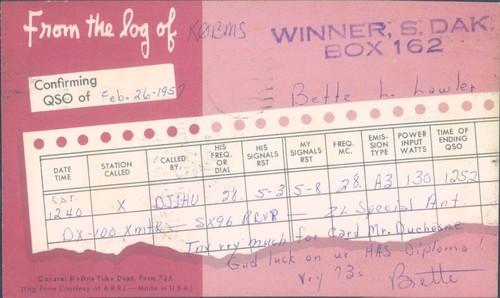 From the log of KØBMS
WINNER, S. DAK.
BOX 162
Confirming
QSO of Feb. 26-1957
Bette L. Lawler
DATE TIME STATION CALLED CALLED BY. HIS FREQ. OR DIAL HIS SIGNALS RST MY SIGNALS RST FREQ. MC. EMIS- SION TYPE POWER INPUT WATTS TIME OF ENDING QSO
CST. 1240 X 28. 5-3 5-8 28. A3 130 1252
DX-100 Xmtr — SX96 RCVR — ZL Special Ant.
Tnx vry much for Card Mr. Duchesne
Gud luck on ur HAS Diploma!
Vry 73s Bette
General Electric Tube Dept. Form 73A
(Orig. Form Courtesy of A.R.R.L.—Made in U.S.A.)